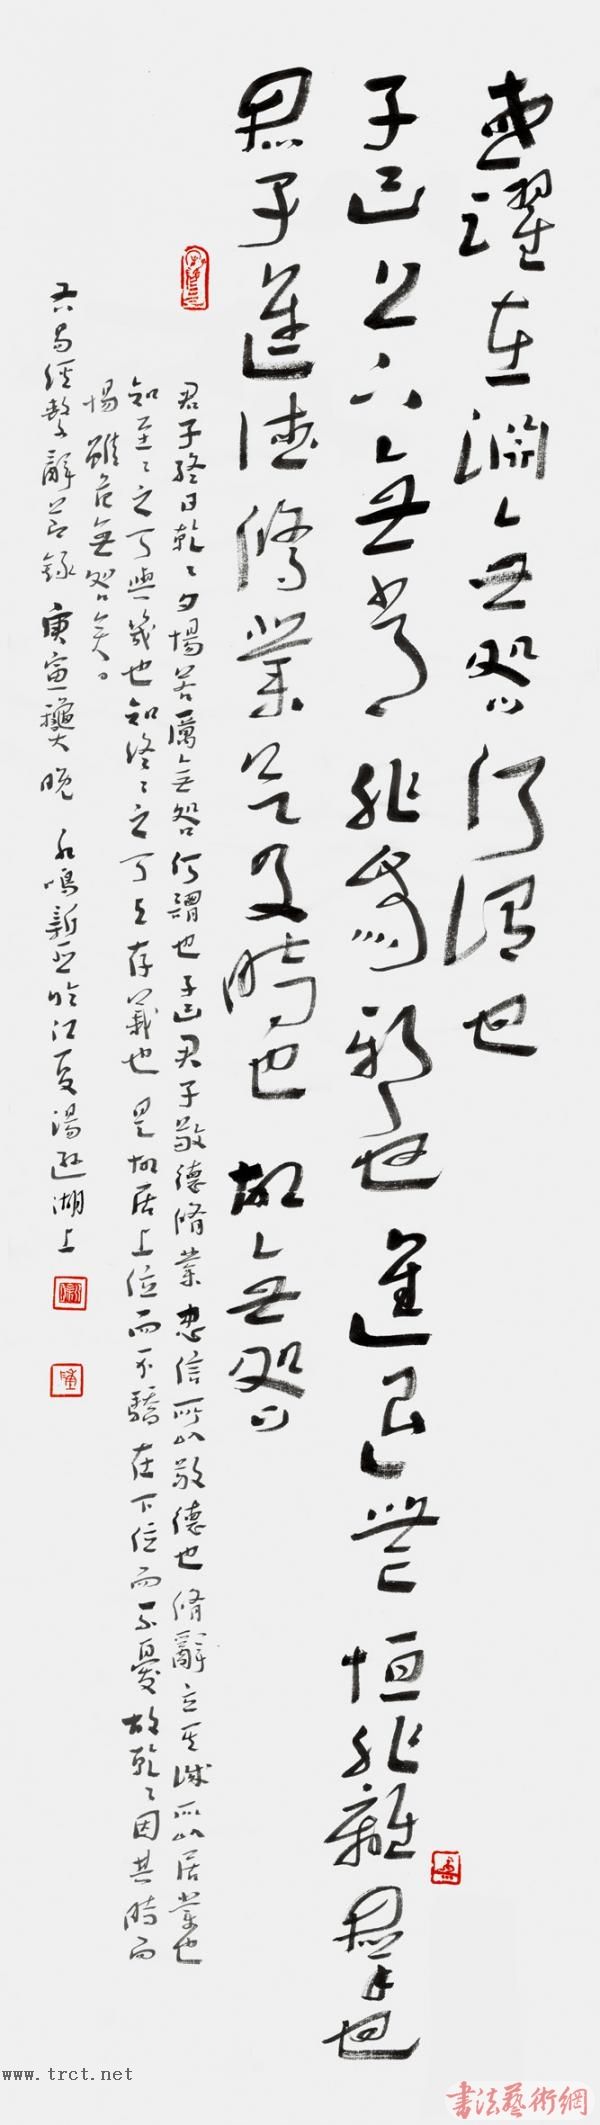 或躍在淵无咎何謂也
子曰上下无常非為邪也進退无恒非離羣也
君子進德脩業欲及時也故无咎
君子終日乾乾夕惕若厲無咎何謂也子曰君子敬德脩業忠信所以敬德也脩辭立其誠所以居業也
知至至之可與幾也知終終之可與存義也是故居上位而不驕在下位而不憂故乾乾因其時而
惕雖危無咎矣。
右易經繫辭節錄 庚寅 晚 於江夏湯遜湖上
www.trct.net
書法藝術網